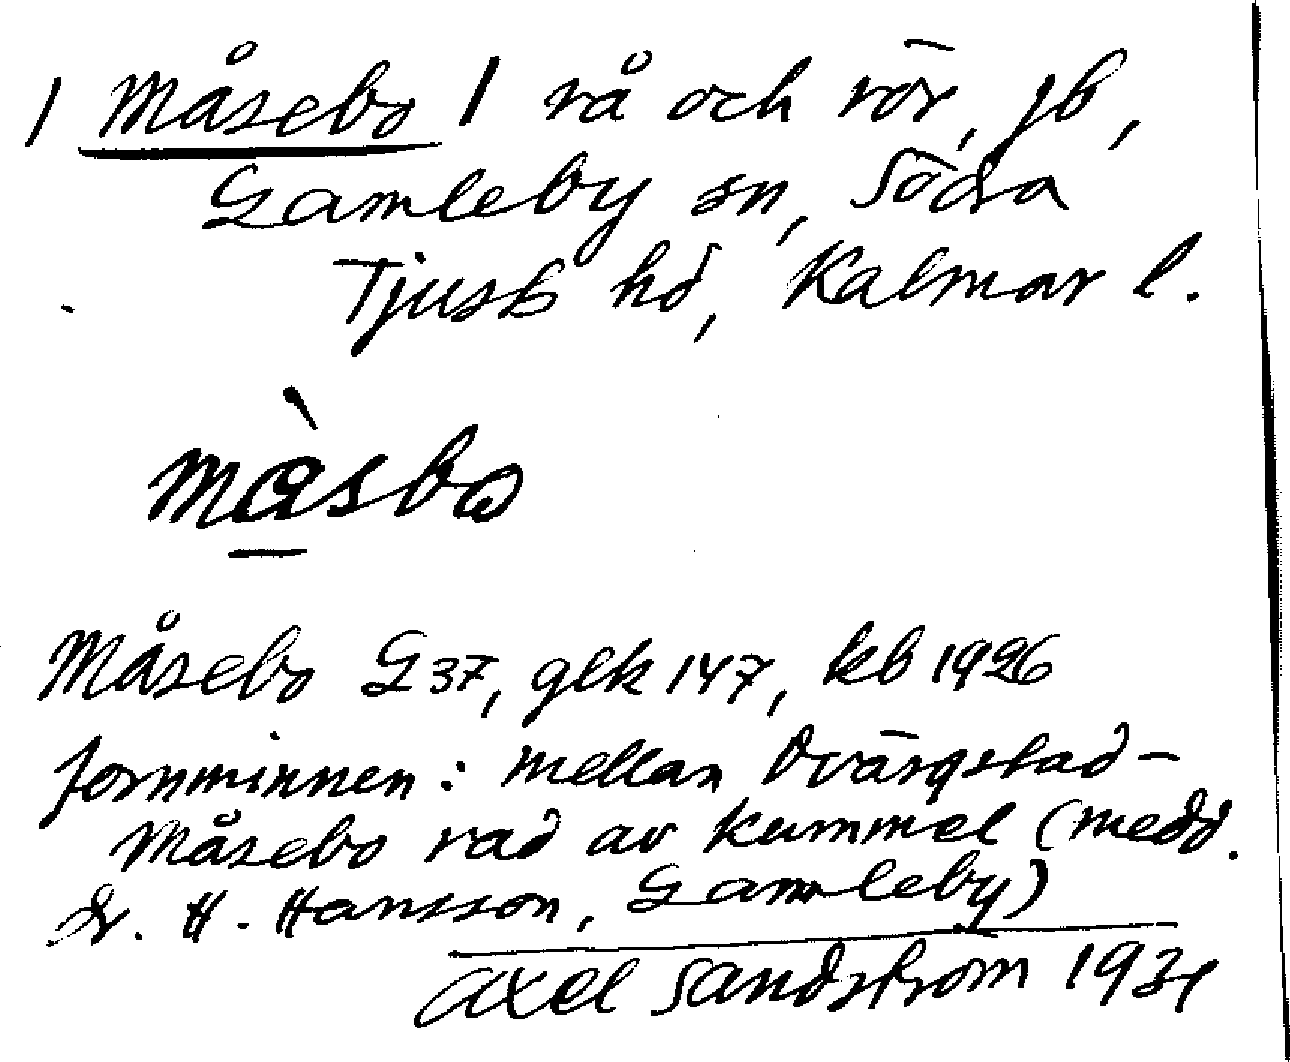 1 Måsebo 1 rå och rör, jb,
Gamleby sn, Södra
Tjusts hd, Kalmar l.
màsbo
Måsebo G37, glk 147, kb 1926
fornminnen: mellan Dvärgstad-
Måsebo rad av kummel (medd.
dr. H. Hansson, Gamleby)
Axel Sandström 1931